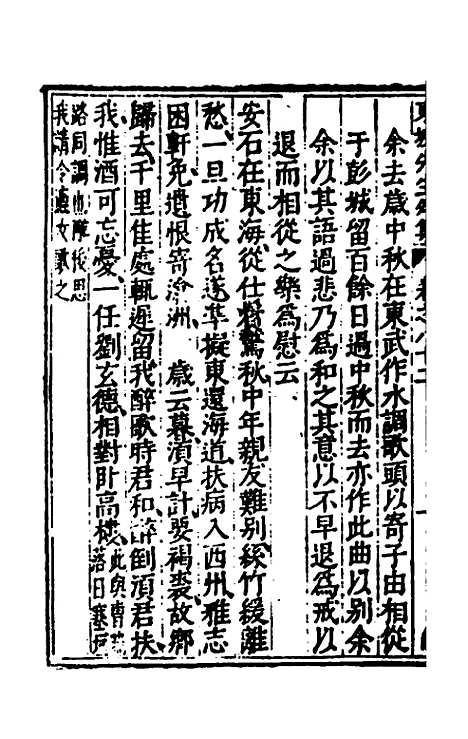 余去歲中秋在東武作水調歌頭以寄子由相從
于彭城留百餘日過中秋而去亦作此曲以別余
余以其語過悲乃為和之其意以不早退為戒以
退而相從之樂為慰云
安石在東海從仕鬢驚秋中年親友難別絲竹緩離
愁一旦功成名遂準擬東還海道扶病入西州雅志
困軒冕遺恨寄滄洲　歲云暮須早計要褐裘故鄉
歸去千里佳處輒遲留我醉歌時君和醉倒須君扶
我惟酒可忘憂一任劉玄德相對臥高樓此與曹
落日塞
路同調也陳後思
我請令 女歌之